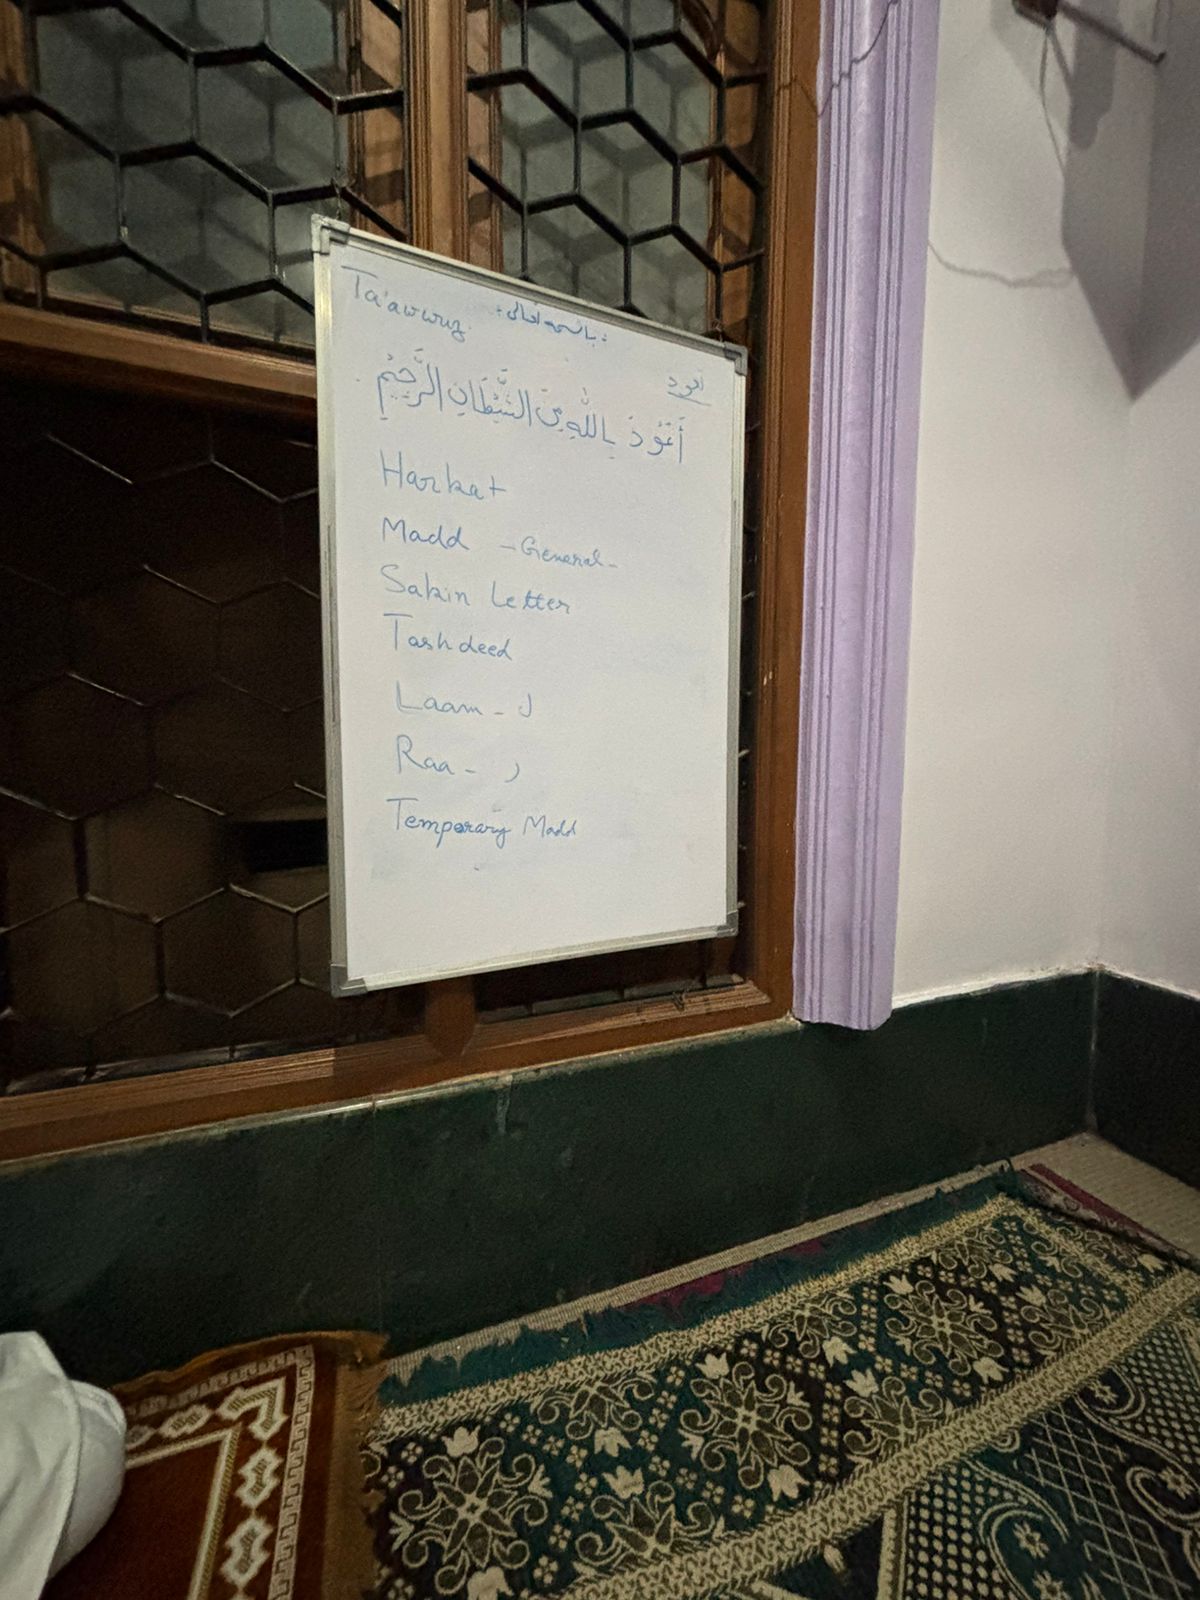 Ta'awwuz
باسمہ تعالی
تعوذ
أَعُوْذُ بِاللّٰهِ مِنَ الشَّيْطَانِ الرَّجِيْمِ
Harkat
Madd - General -
Sakin Letter
Tashdeed
Laam - ل
Raa - ر
Temporary Madd